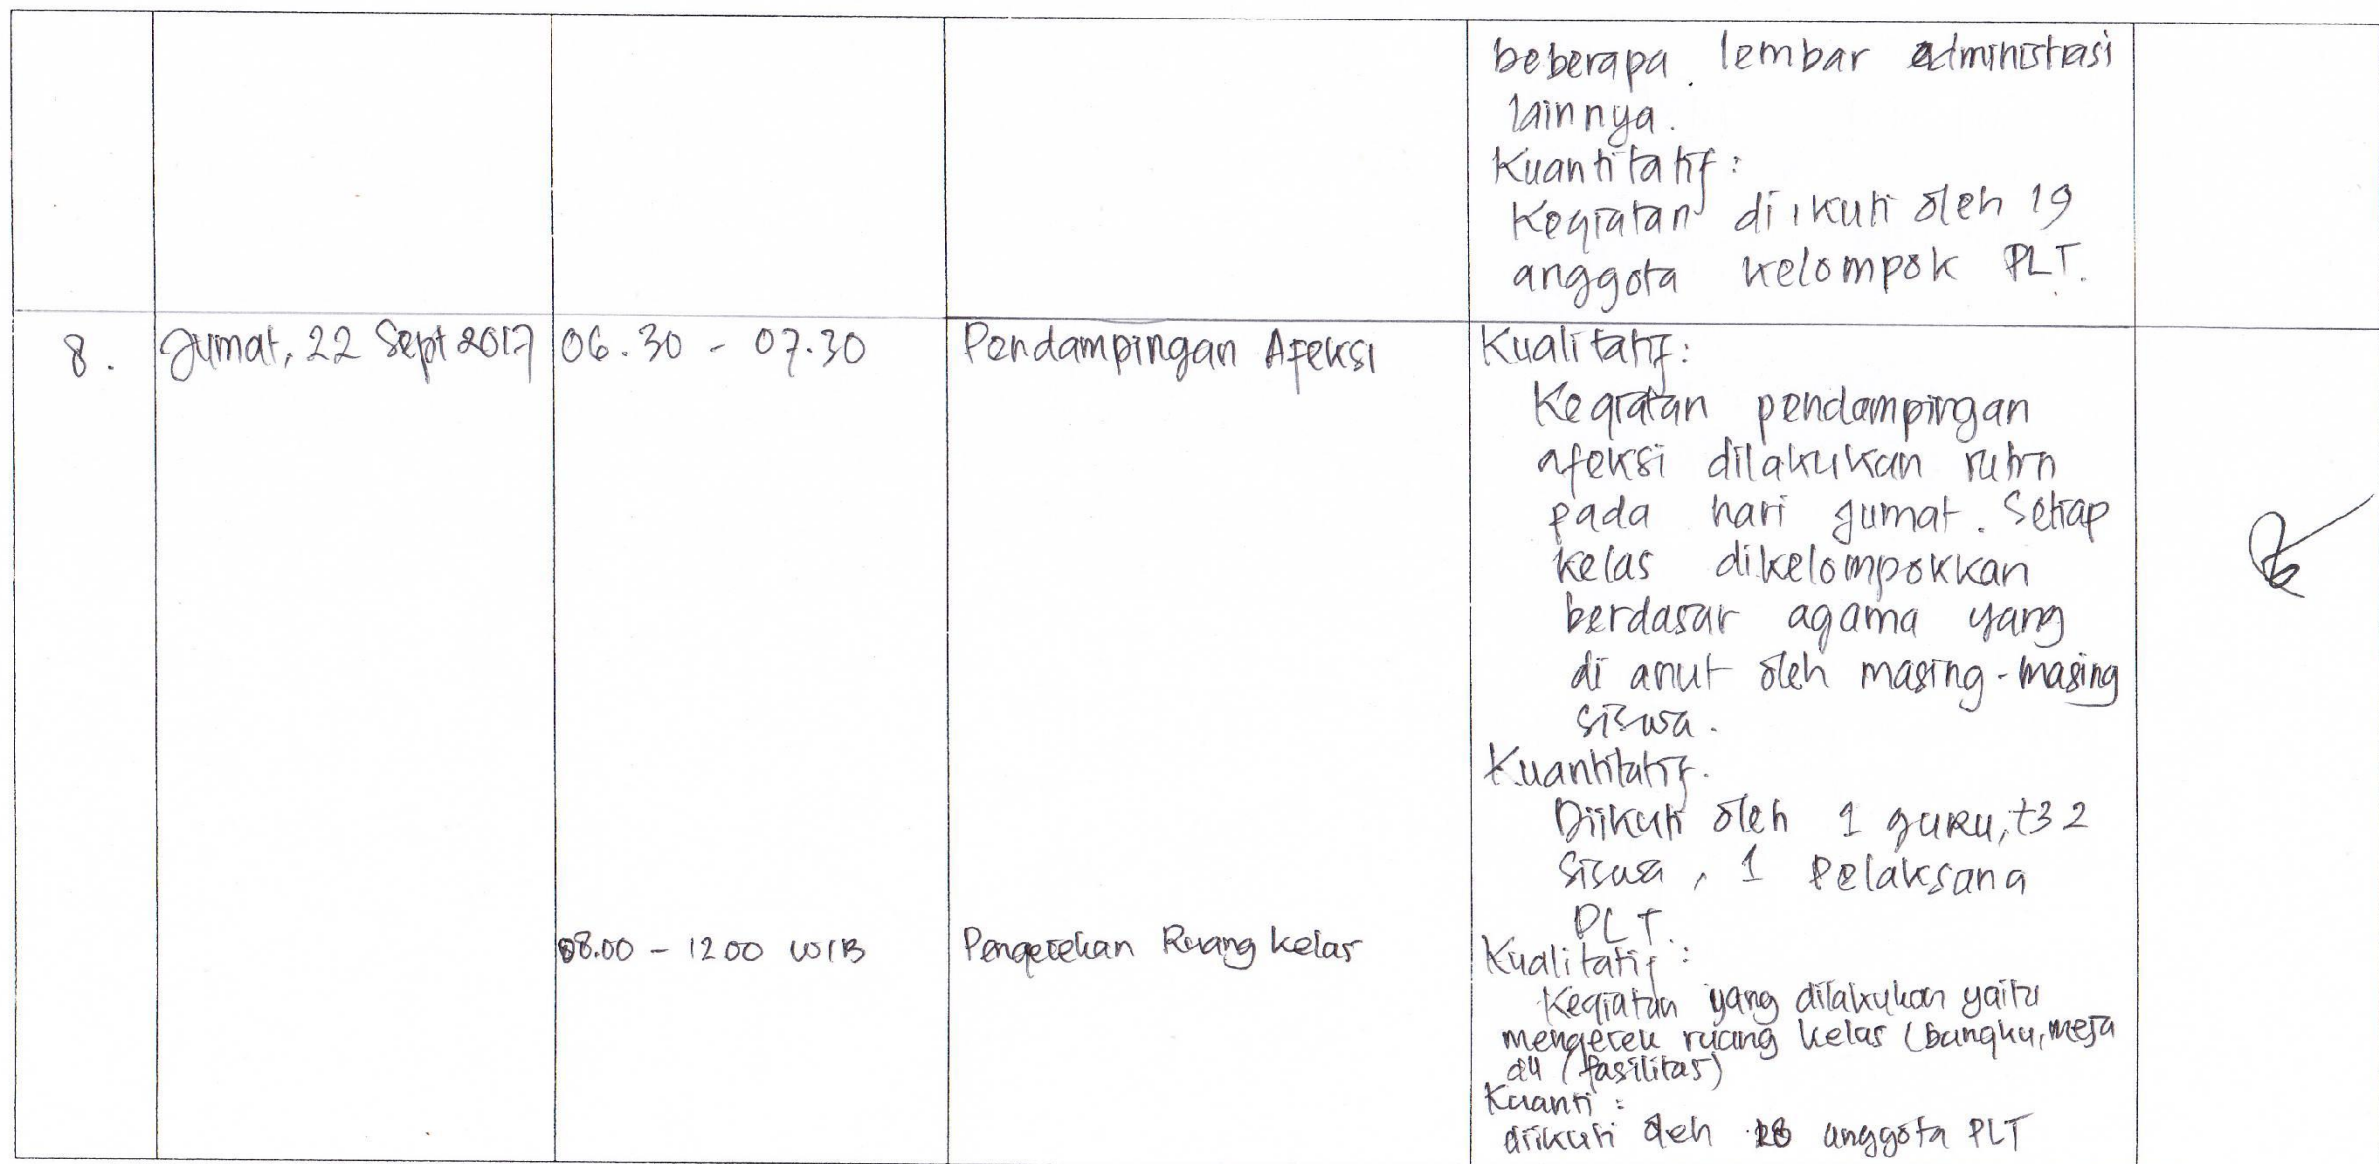 beberapa lembar administrasi
lainnya.
Kuantitatif :
Kegiatan diikuti oleh 19
anggota kelompok PLT.
8. Jumat, 22 Sept 2017 06.30 - 07.30 Pendampingan Afeksi Kualitatif :
Kegiatan pendampingan
afeksi dilakukan rutin
pada hari jumat. Setiap
kelas dikelompokkan
berdasar agama yang
di anut oleh masing-masing
siswa.
Kuantitatif.
Diikuti oleh 1 guru, ±32
siswa, 1 pelaksana
PLT.
08.00 - 12.00 WIB Pengecekan Ruang kelas Kualitatif :
Kegiatan yang dilakukan yaitu
mengecek ruang kelas (bangku, meja
dll (fasilitas)
Kuanti :
diikuti oleh anggota PLT